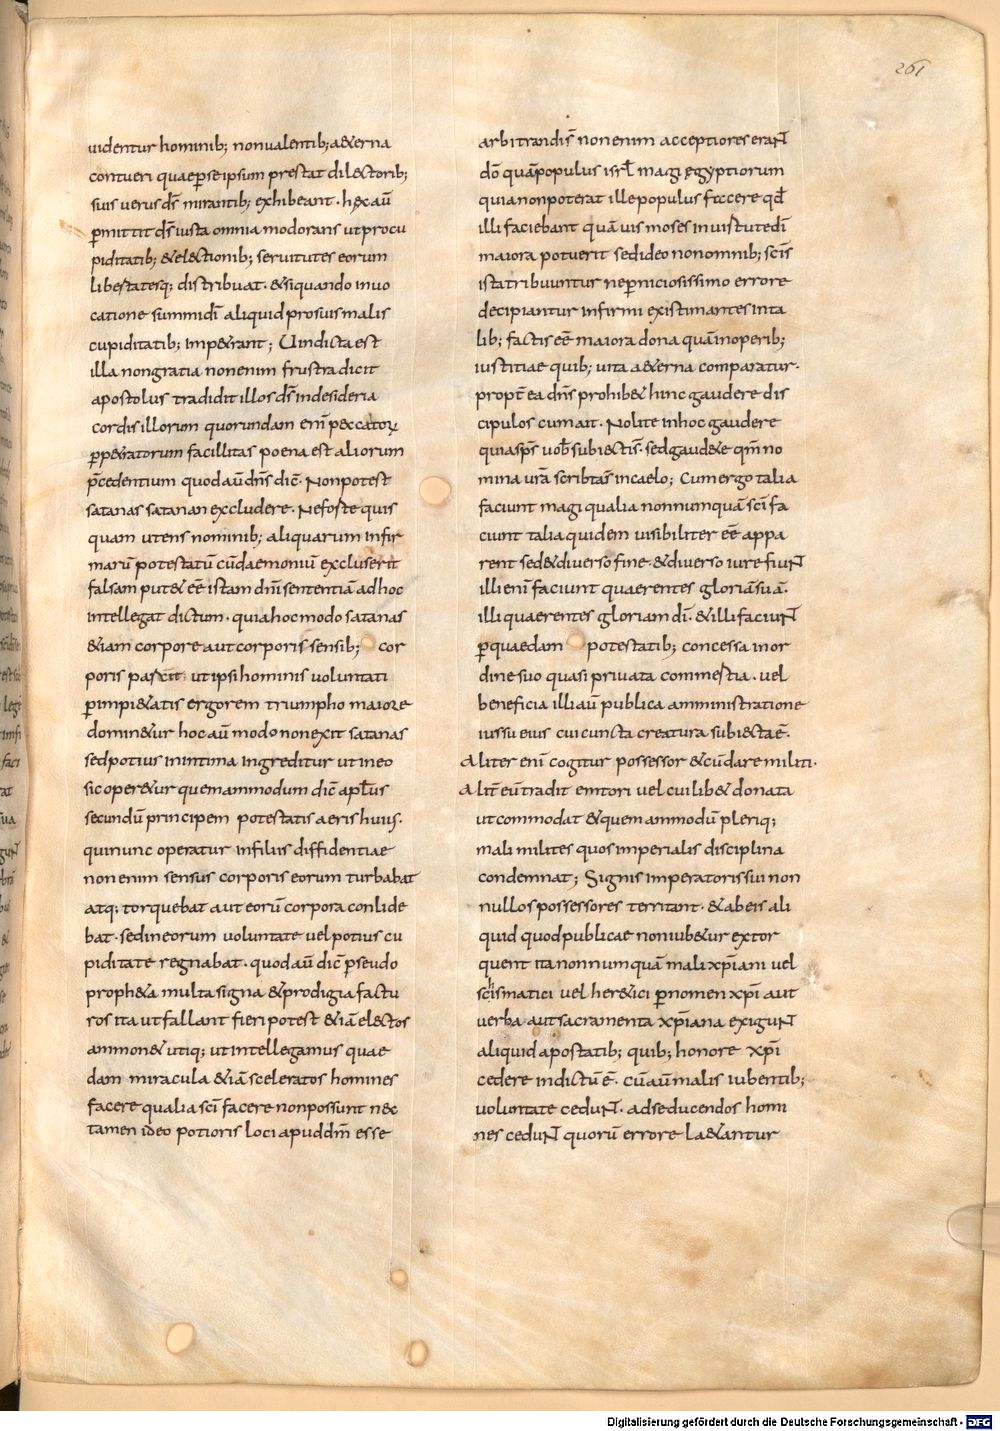 261
uidentur hominib; nonualentib; a&erna
contueri quaeꝑse ipsum prestat dilectorib;
suis uerus ds̄ mirantib; exhibeant · hęc aū
ꝑmittit ds̄ iusta omnia modorans ut procu
piditatib; & electionib; seruitutes eorum
libertatesq; distribuat · & siquando inuo
catione summi dī aliquid pro suis malis
cupiditatib; imp&rant; Uindicta est
illa non gratia non enim frustra dicit
apostolus tradidit illos ds̄ in desideria
cordis illorum quorundam enī peccatoꝝ
ꝑp&ratorum facillitas poena est aliorum
p̄cedentium quod aū dn̄s dic̄ · Non potest
satanas satanan excludere · Ne forte quis
quam utens nominib; aliquarum infir
marū potestatū cū daemoniū excluserit
falsam put& eē istam dn̄i sententiā ad hoc
intellegat dictum · quia hoc modo satanas
&iam corpore aut corporis sensib; cor
poris parcit ut ipsi hominis uoluntati
ꝑ impi&atis ergorem triumpho maiore
domin&ur hoc aū modo non exit satanas
sed potius in intima ingreditur ut in eo
sic oper&ur quemammodum dic̄ apl̄us
secundū principem potestatis aeris huius ·
qui nunc operatur in filiis diffidentiae
non enim sensus corporis eorum turbabat
atq; torquebat aut eorū corpora conlide
bat · sed in eorum uoluntate uel potius cu
piditate regnabat · quod aū dic̄ pseudo
proph&a multa signa & prodigia factu
ros ita ut fallant fieri potest &iā electos
ammon& utiq; ut intellegamus quae
dam miracula &iā sceleratos homines
facere qualia sc̄i facere non possunt nec
tamen ideo potioris loci apud dm̄ esse
arbitrandis̄ non enim acceptiores eraɴt
dō quā populus isrl̄ magi ęgyptiorum
quia non poterat ille populus facere qd̄
illi faciebant quā uis moses in uirtute dī
maiora potuerit sed ideo non omnib; sc̄is
ista tribuuntur ne ꝑniciosissimo errore
decipiantur infirmi existimantes in ta
lib; factis eē maiora dona quā in operib;
iustitiae quib; uita a&erna comparatur ·
propt̄ ea dn̄s prohib& hinc gaudere dis
cipulos cum ait · Nolite in hoc gaudere
quia sps̄ uob̄ subiectis̄ · sed gaud&e qm̄ no
mina ur̄a scribta s̄ in caelo; Cum ergo talia
faciunt magi qualia nonnumquā sc̄i fa
ciunt talia quidem uisibiliter eē appa
rent sed & diuerso fine · & diuerso iure fiuɴt
illi enī faciunt quaerentes gloriā suā ·
illi quaerentes gloriam dī · & illi faciuɴt
ꝑ quaedam potestatib; concessa in or
dine suo quasi priuata commertia · uel
beneficia illi aū publica amministratione
iussu eius cui cuncta creatura subiecta ē ·
Aliter enī cogitur possessor & cū dare militi ·
Alit̄ eū tradit emtori uel cui lib& donata
ut commodat & quemammodū pleriq;
mali milites quos imperialis disciplina
condemnat; Signis imperatoris sui non
nullos possessores territant · & ab eis ali
quid quod publicae non iub&ur extor
quent ita nonnumquā mali xp̄iani uel
scismatici uel her&ici ꝑ nomen xp̄i aut
uerba aut sacramenta xp̄iana exiguɴt
aliquid apostatib; quib; honore xp̄i
cedere indictū ē · cū aū malis iubentib;
uoluntate ceduɴt · ad seducendos homi
nes ceduɴt quorū errore la&antur
Digitalisierung gefördert durch die Deutsche Forschungsgemeinschaft - DFG